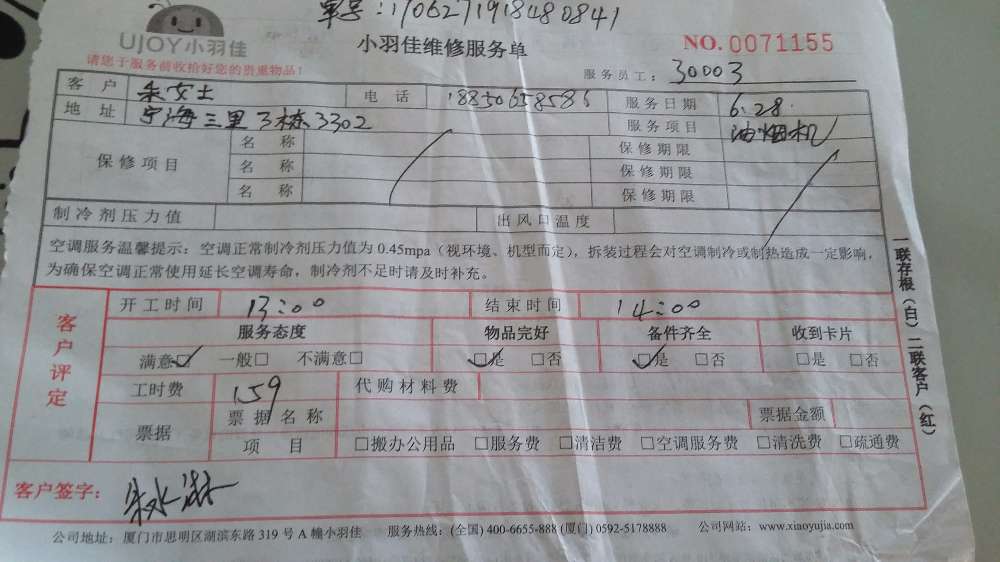 单号:170627191848084​1
UJOY小羽佳
小羽佳维修服务单
NO. 0071155
请您于服务前收拾好您的贵重物品!
服务员工: 30003
客户 朱女士 电话 18850658586 服务日期 6.28.
地址 宁海三里3栋3302 服务项目 油烟机
保修项目 名称 保修期限
名称 保修期限
名称 保修期限
制冷剂压力值 出风口温度
空调服务温馨提示:空调正常制冷剂压力值为0.45mpa(视环境、机型而定),拆装过程会对空调制冷或制热造成一定影响,
为确保空调正常使用延长空调寿命,制冷剂不足时请及时补充。
客户评定
开工时间 13:00 结束时间 14:00
服务态度 物品完好 备件齐全 收到卡片
满意☑ 一般□ 不满意□ ☑是 □否 ☑是 □否 □是 □否
工时费 159 代购材料费
票据 票据名称 票据金额
项目 □搬办公用品 □服务费 □清洁费 □空调服务费 □清洗费 □疏通费
客户签字:
公司地址:厦门市思明区湖滨东路319号A幢小羽佳 服务热线:(全国) 400-6655-888 (厦门) 0592-5178888 公司网站:www.xiaoyujia.com
一联存根(白)二联客户(红)